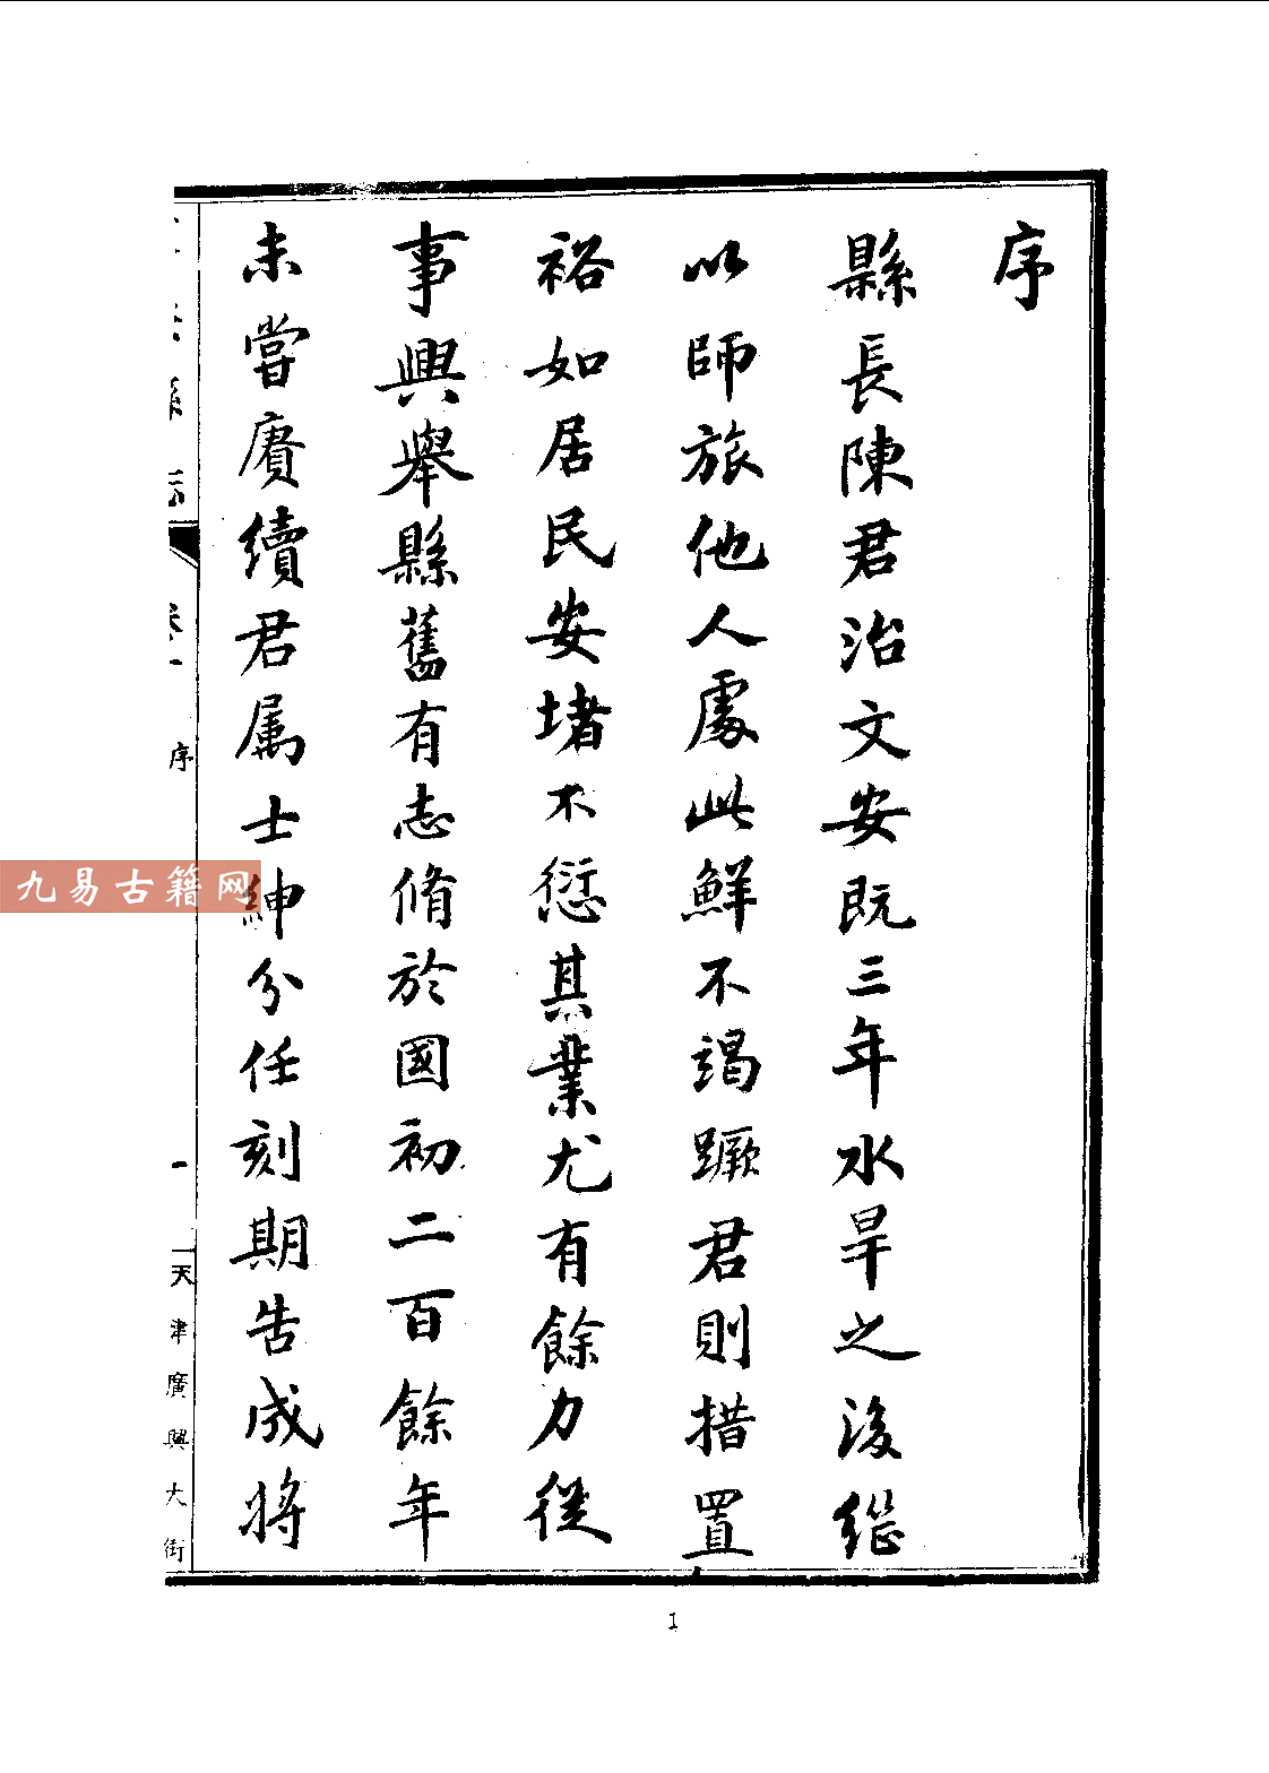 序
縣長陳君治文安既三年水旱之後繼
以師旅他人處此鮮不竭蹶君則措置
裕如居民安堵不愆其業尤有餘力從
事興舉縣舊有志脩於國初二百餘年
未嘗賡續君属士紳分任刻期告成將
縣志
卷一
序
一
天津廣興大街
九易古籍网
1